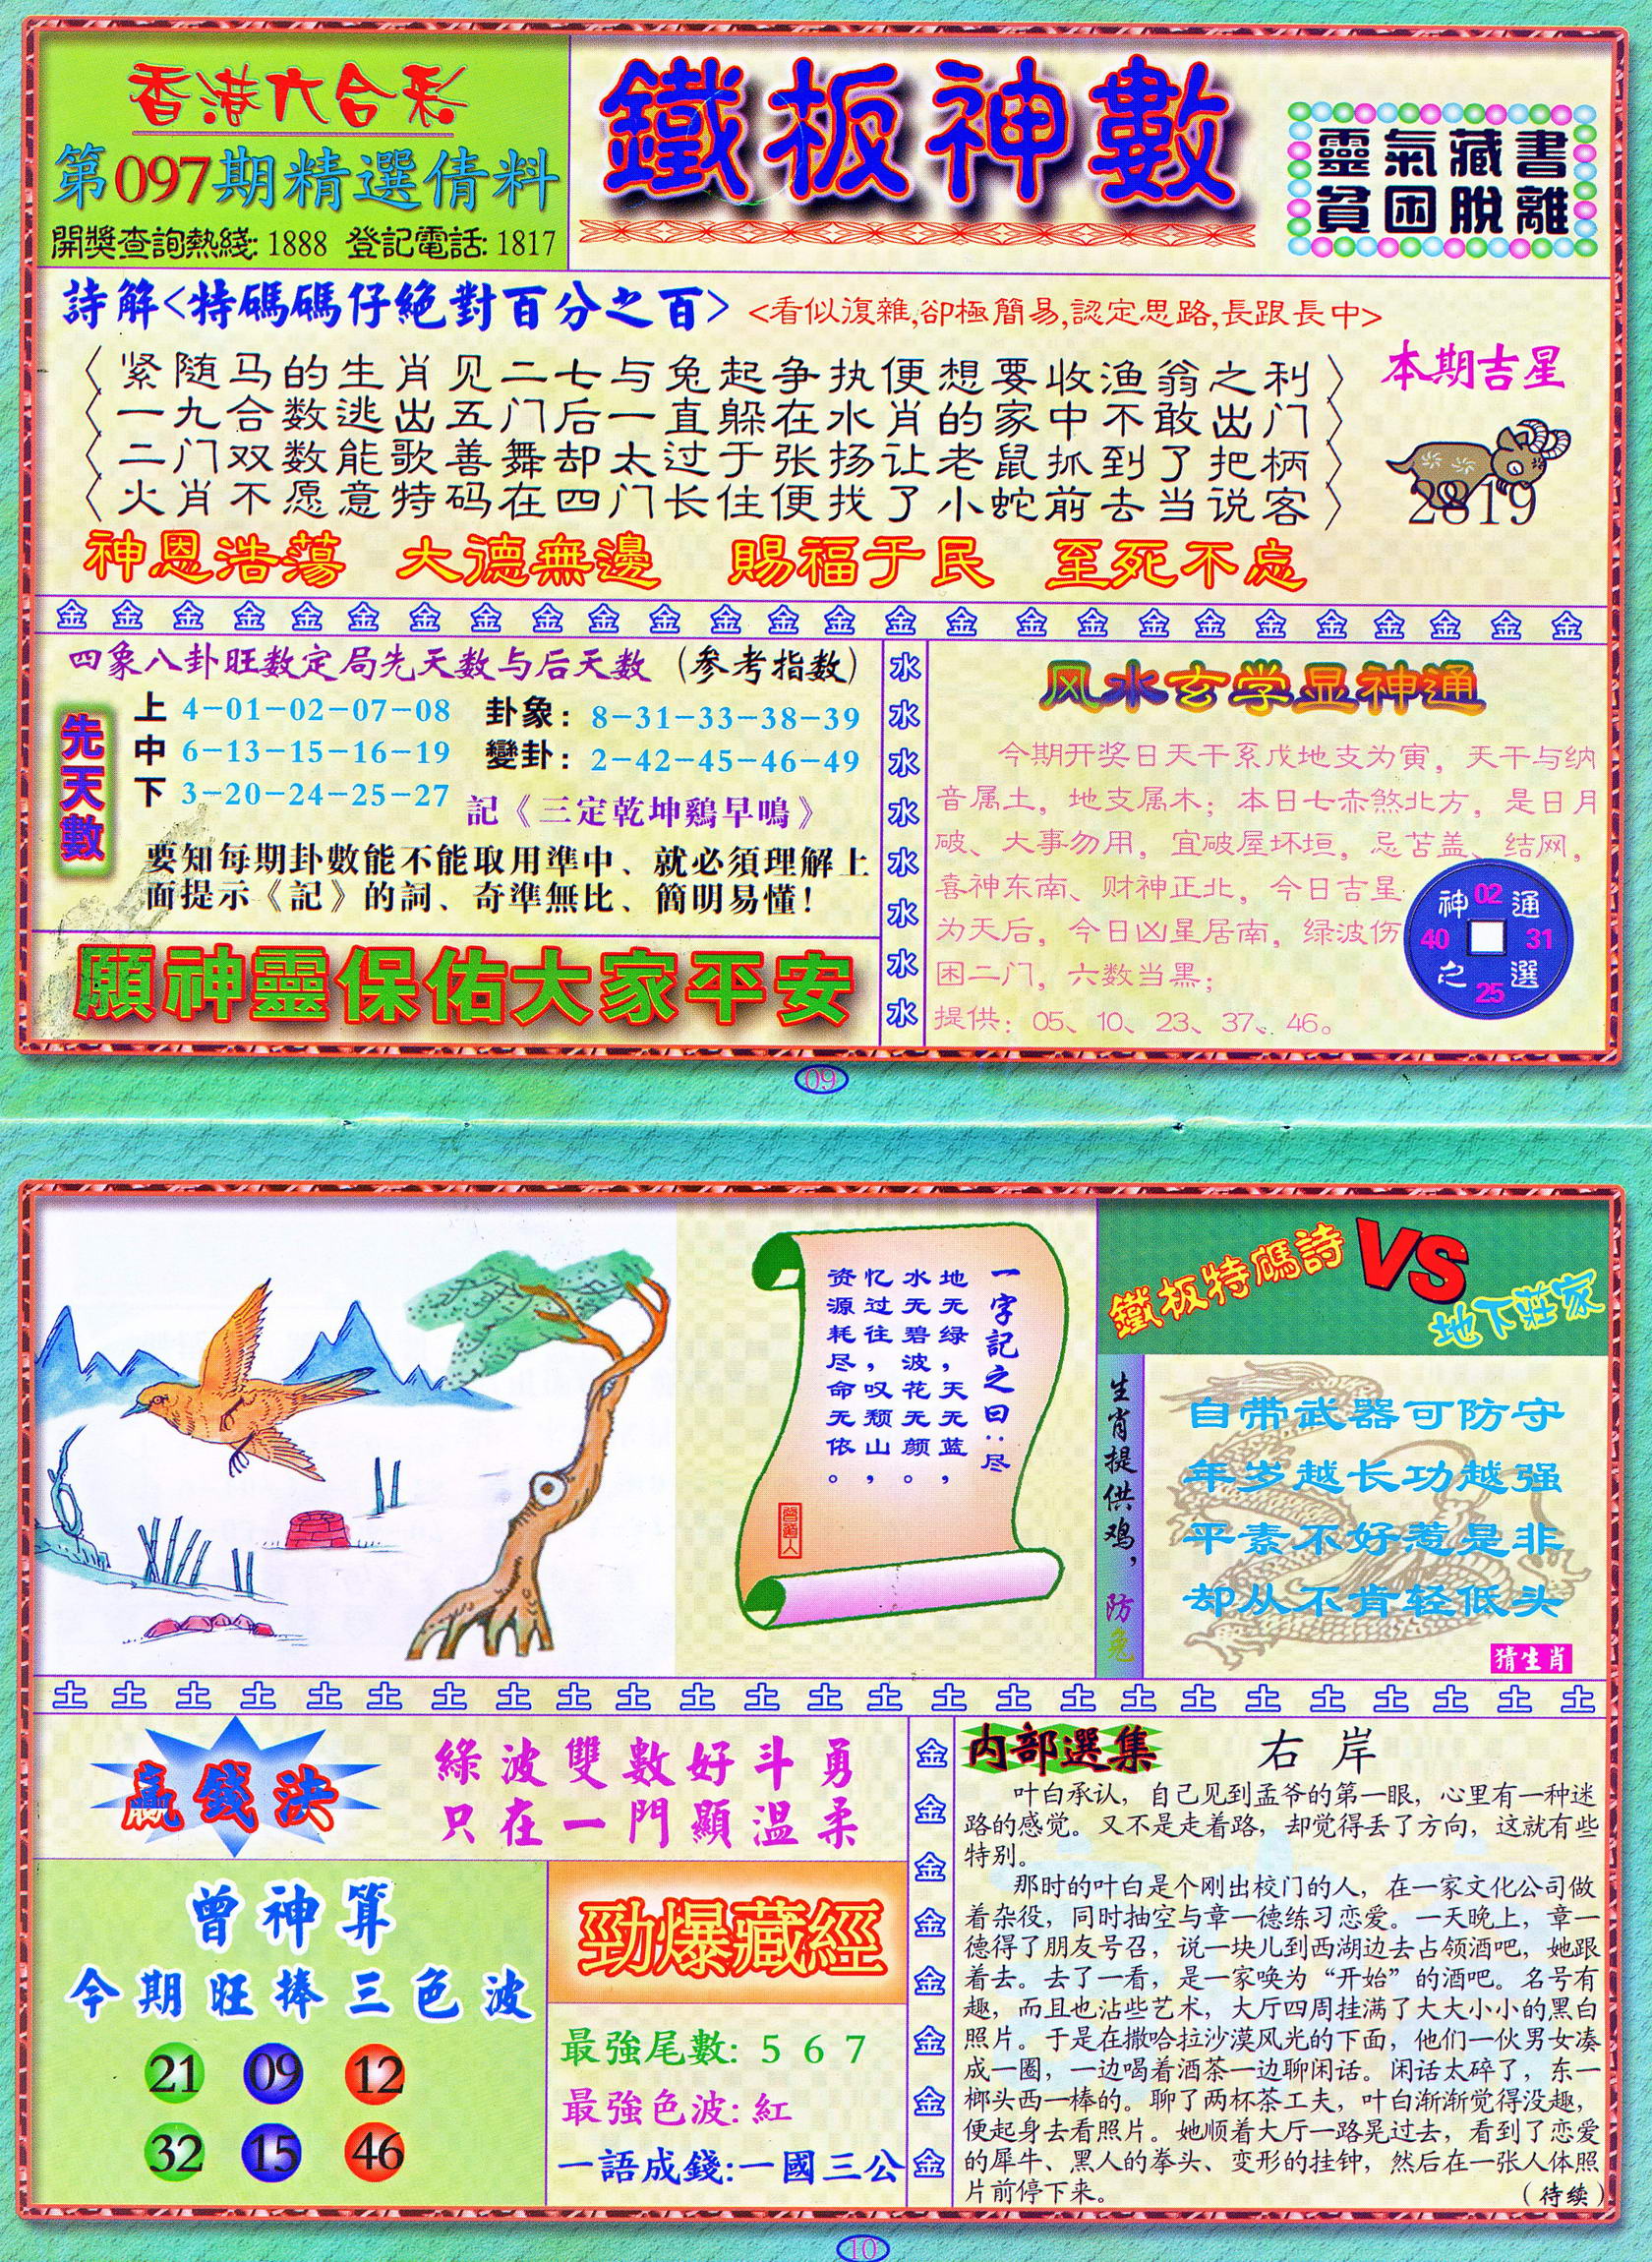 香港六合彩
第097期精選倩料
開獎查詢熱綫: 1888 登記電話: 1817
鐵板神數
靈氣藏書
貧困脫離
詩解<特碼碼仔絕對百分之百> <看似復雜,卻極簡易,認定思路,長跟長中>
紧随马的生肖见二七与兔起争执便想要收渔翁之利
一九合数逃出五门后一直躲在水肖的家中不敢出门
二门双数能歌善舞却太过于张扬让老鼠抓到了把柄
火肖不愿意特码在四门长住便找了小蛇前去当说客
本期吉星
2819
神恩浩蕩 大德無邊 賜福于民 至死不忘
金 金 金 金 金 金 金 金 金 金 金 金 金 金 金 金 金 金 金 金 金 金 金 金 金 金
四象八卦旺数定局先天数与后天数（参考指数）
先天數
上 4-01-02-07-08 卦象: 8-31-33-38-39
中 6-13-15-16-19 變卦: 2-42-45-46-49
下 3-20-24-25-27 記《三定乾坤鷄早鳴》
要知每期卦數能不能取用準中、就必須理解上
面提示《記》的詞、奇準無比、簡明易懂!
願神靈保佑大家平安
水
水
水
水
水
水
水
水
风水玄学显神通
今期开奖日天干系戊地支为寅，天干与纳
音属土，地支属木；本日七赤煞北方，是日月
破、大事勿用，宜破屋坏垣，忌苫盖、结网，
喜神东南、财神正北，今日吉星
为天后，今日凶星居南，绿波伤
困二门，六数当黑；
提供：05、10、23、37、46。
神 02 通
40 31
之 25 選
09
一字記之曰:尽
地无绿，天无蓝，
水无碧波，花无颜。
忆过往，叹颓山，
资源耗尽，命无依。
鐵板特碼詩 VS 地下莊家
生肖提供鸡，防兔
自带武器可防守
年岁越长功越强
平素不好惹是非
却从不肯轻低头
猜生肖
土 土 土 土 土 土 土 土 土 土 土 土 土 土 土 土 土 土 土 土 土 土 土 土 土
贏錢決
綠波雙數好斗勇
只在一門顯温柔
曾神算
今期旺捧三色波
21 09 12
32 15 46
勁爆藏經
最強尾數: 5 6 7
最強色波: 紅
一語成錢:一國三公
金
金
金
金
金
金
金
金
内部選集 右岸
叶白承认，自己见到孟爷的第一眼，心里有一种迷
路的感觉。又不是走着路，却觉得丢了方向，这就有些
特别。
那时的叶白是个刚出校门的人，在一家文化公司做
着杂役，同时抽空与章一德练习恋爱。一天晚上，章一
德得了朋友号召，说一块儿到西湖边去占领酒吧，她跟
着去。去了一看，是一家唤为“开始”的酒吧。名号有
趣，而且也沾些艺术，大厅四周挂满了大大小小的黑白
照片。于是在撒哈拉沙漠风光的下面，他们一伙男女凑
成一圈，一边喝着酒茶一边聊闲话。闲话太碎了，东一
榔头西一棒的。聊了两杯茶工夫，叶白渐渐觉得没趣，
便起身去看照片。她顺着大厅一路晃过去，看到了恋爱
的犀牛、黑人的拳头、变形的挂钟，然后在一张人体照
片前停下来。
（待续）
10